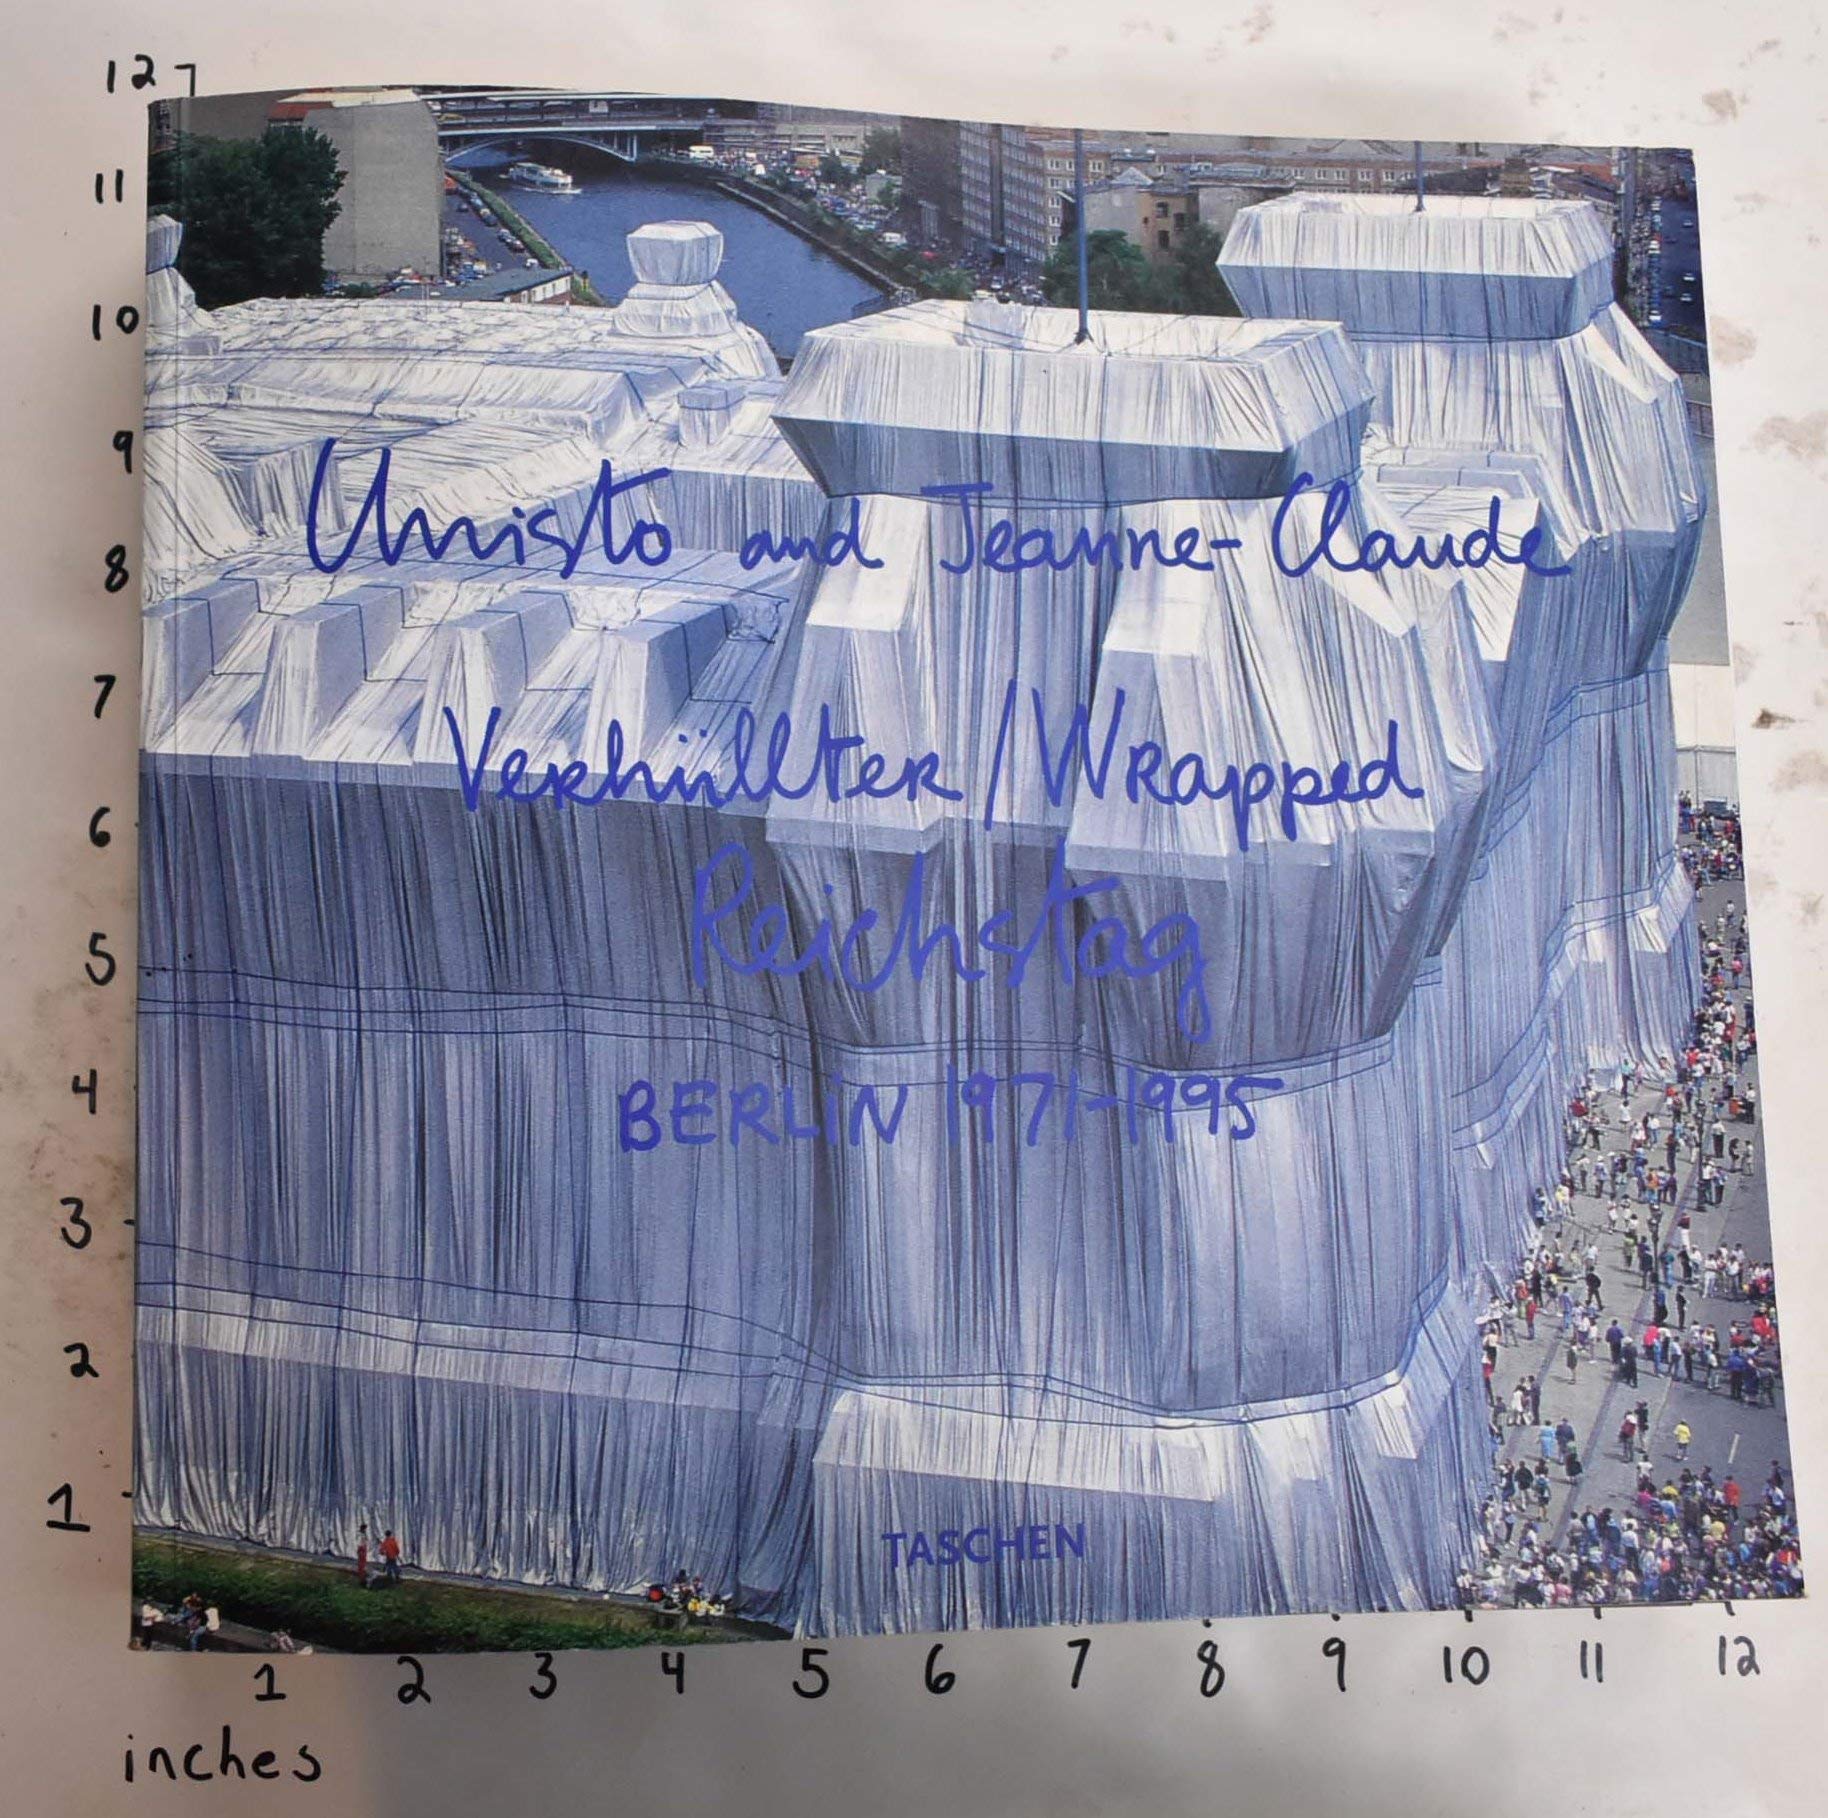 12
11
10
9
8
7
6
5
4
3
2
1
Christo and Jeanne-Claude
Verhüllter/Wrapped
Reichstag
BERLIN 1971-1995
TASCHEN
1 2 3 4 5 6 7 8 9 10 11 12
inches